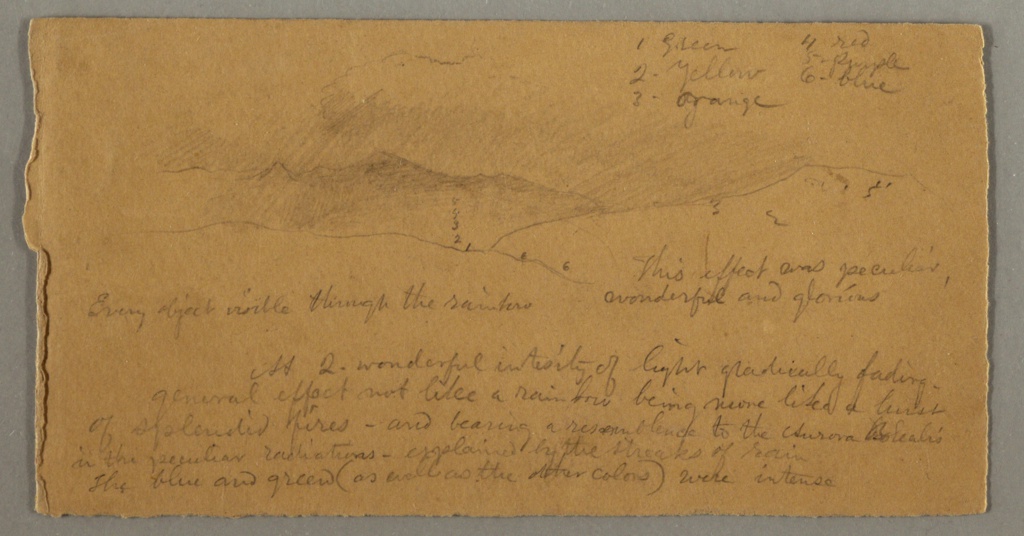 1 Green
2 - Yellow
3 - Orange
4 red
5 - Purple
6 - blue
5
3
2
3
2
1
6
This effect was peculiar,
wonderful and glorious
Every object visible through the rainbow
At 2 - wonderful intesity of light gradically fading -
general effect not like a rainbow being more like a burst
of splendid fires - and bearing a resemblence to the Aurora Borealis
in the peculiar radiations - explained by the streaks of rain
The blue and green (as well as the other colors) were intense